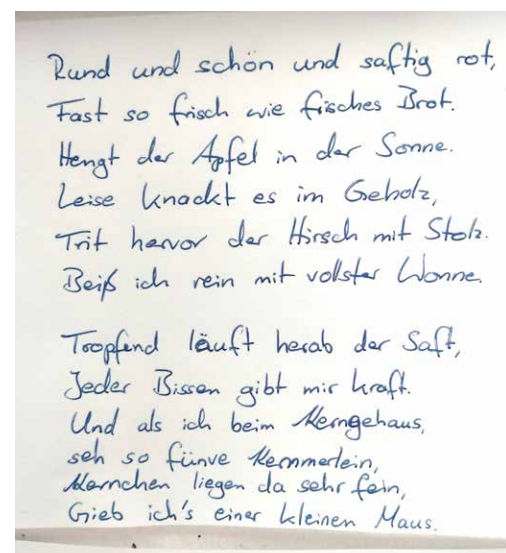 Rund und schön und saftig rot,
Fast so frisch wie frisches Brot.
Hengt der Apfel in der Sonne.
Leise knackt es im Geholz,
Trit hervor der Hirsch mit Stolz.
Beiß ich rein mit vollster Wonne.
Tropfend läuft herab der Saft,
Jeder Bissen gibt mir kraft.
Und als ich beim Kerngehaus,
seh so fünve Kemmerlein,
Kernchen liegen da sehr fein,
Gieb ich's einer kleinen Maus.